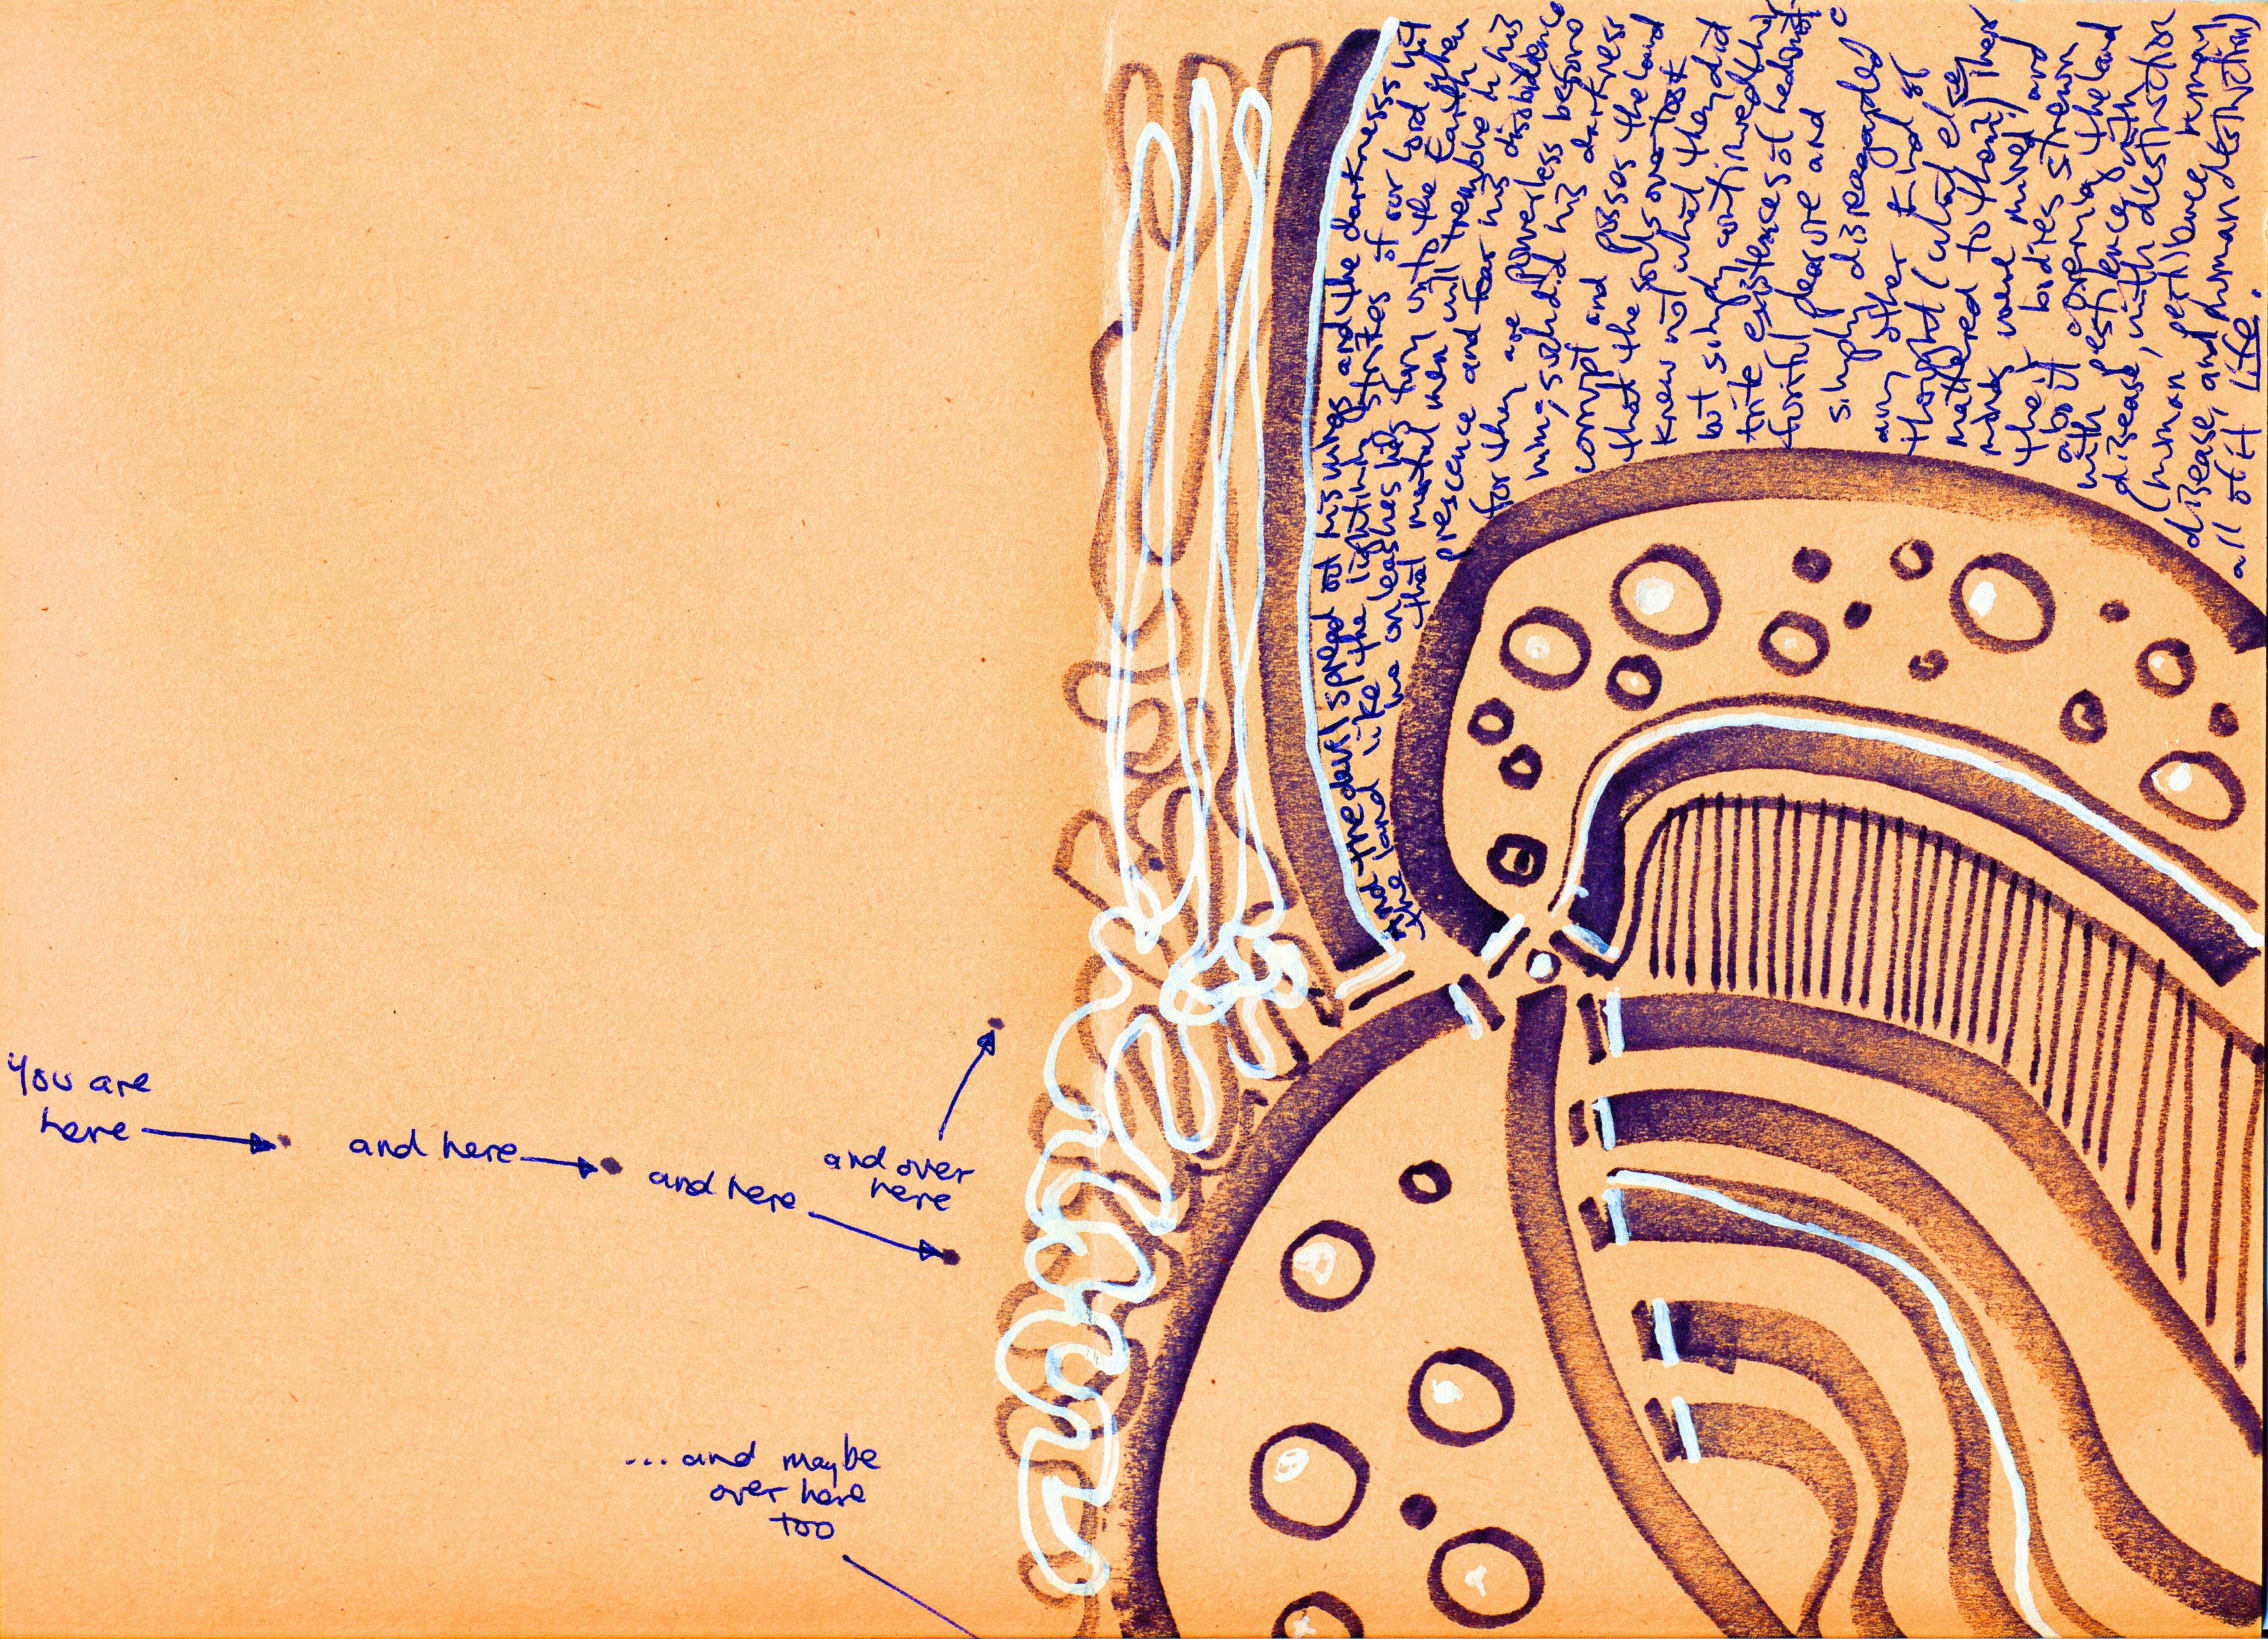 You are
here
and here
and here
and over
here
...and maybe
over here
too
And the devil spread out his wings and the darknesss
the land like the lightning strikes of our Lord yet
he unleashes his fury unto the Earth when
that mortal men will tremble in his
prescence and fear his disobidience
for they are powerless before
him, such did his darkness
corrupt and posses the land
that the souls over took
knew not what they did
but simply continued their
trite existences of hedonist
fruitful plearure and
simply disregarded
any other kind of
thought (what else
mattered to them) their
minds were mired, and
their bodies strewn
about the land
with pestilence, with
disease, with destruction
(human pestilence, human
disease, and human destruction)
all of it life.